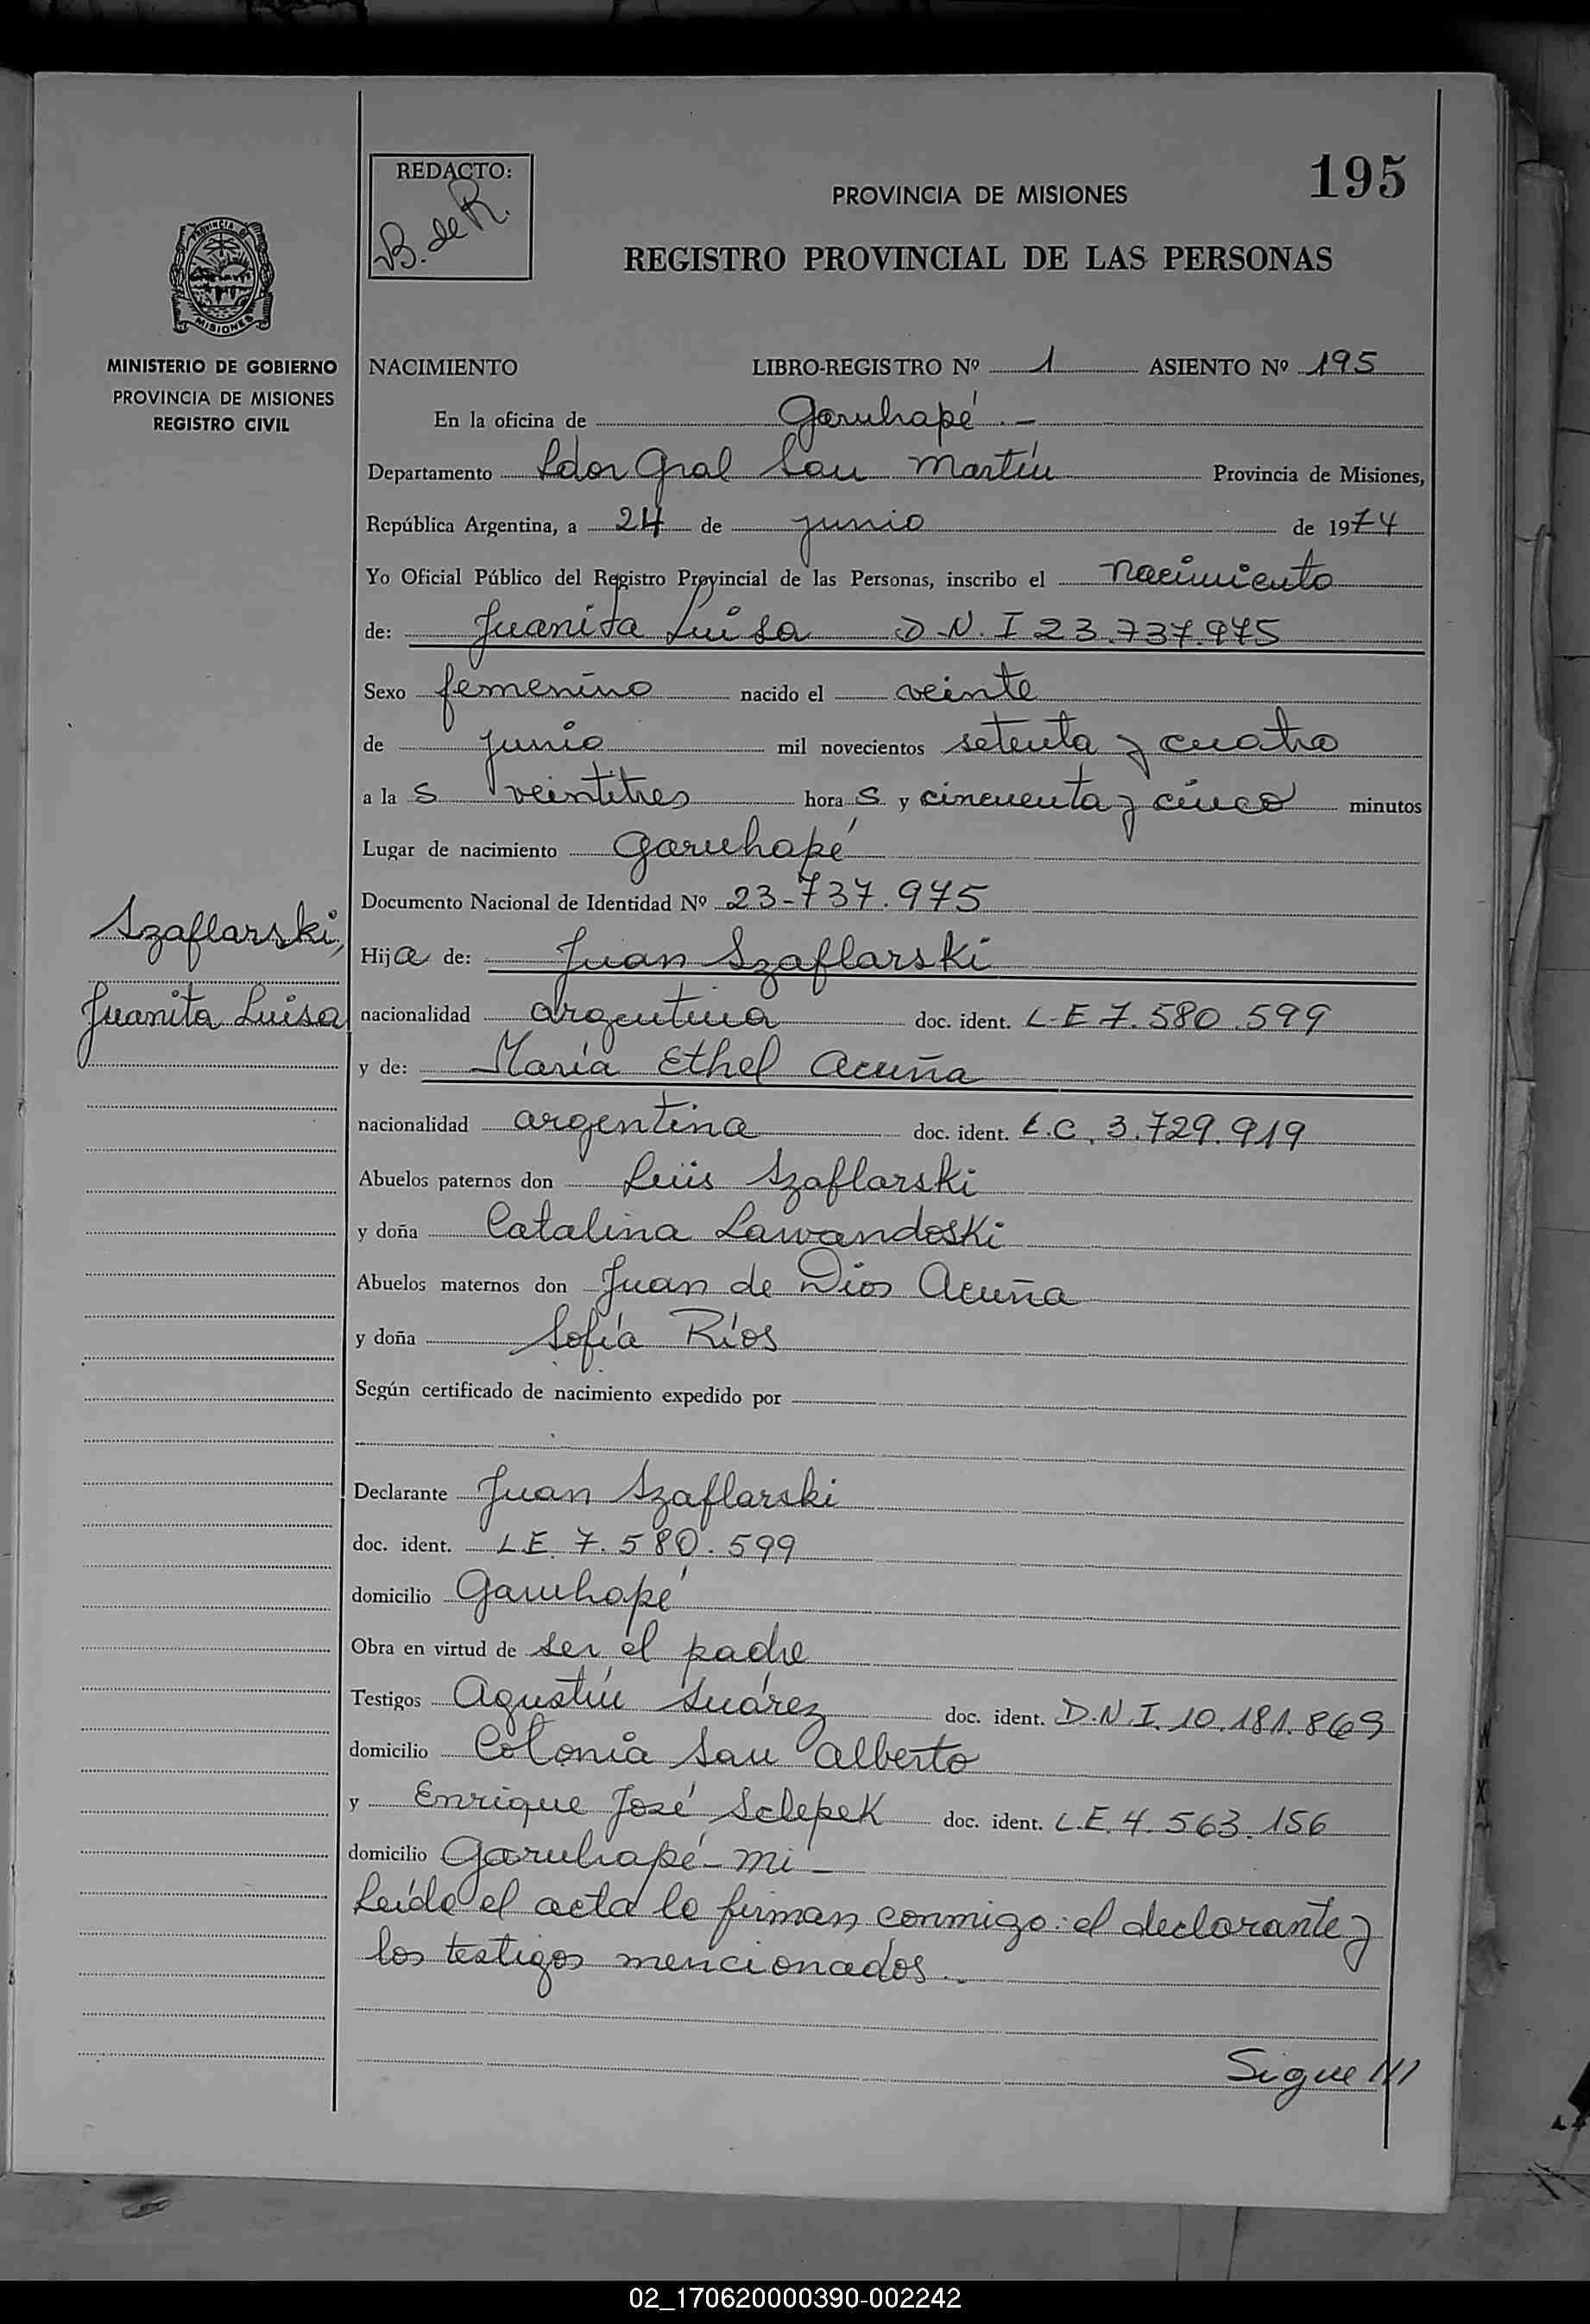 REDACTO:
B. de R.
195
PROVINCIA DE MISIONES
REGISTRO PROVINCIAL DE LAS PERSONAS
PROVINCIA DE
MISIONES
MINISTERIO DE GOBIERNO
PROVINCIA DE MISIONES
REGISTRO CIVIL
NACIMIENTO LIBRO-REGISTRO Nº 1 ASIENTO Nº 195
En la oficina de Garuhapé.-
Departamento Ldor Gral San Martín Provincia de Misiones,
República Argentina, a 24 de junio de 1974
Yo Oficial Público del Registro Provincial de las Personas, inscribo el nacimiento
de: Juanita Luisa D.N.I 23.737.975
Sexo femenino nacido el veinte
de junio mil novecientos setenta y cuatro
a la s veintitres hora s y cincuenta y cinco minutos
Lugar de nacimiento Garuhapé
Documento Nacional de Identidad Nº 23-737.975
Szaflarski,
Juanita Luisa
Hija de: Juan Szaflarski
nacionalidad argentina doc. ident. L-E 7.580.599
y de: María Ethel Acuña
nacionalidad argentina doc. ident. L.C. 3.729.919
Abuelos paternos don Luis Szaflarski
y doña Catalina Lawandoski
Abuelos maternos don Juan de Dios Acuña
y doña Sofía Ríos
Según certificado de nacimiento expedido por
Declarante Juan Szaflarski
doc. ident. LE. 7.580.599
domicilio Garuhapé
Obra en virtud de ser el padre
Testigos Agustín Suárez doc. ident. D.N.I. 10.181.869
domicilio Colonia San Alberto
y Enrique José Sclepek doc. ident. L.E. 4.563.156
domicilio Garuhapé-mi-
Leída el acta la firman conmigo: el declarante y
los testigos mencionados.-
Sigue ///
02_170620000390-002242